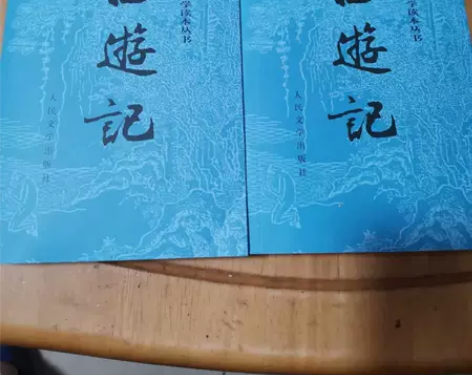 遊記
人民文学出版社
学读本丛书
遊記
人民文学出版社
学读本丛书